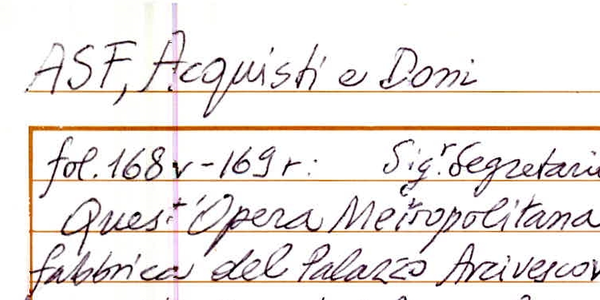 ASF, Acquisti e Doni
fol. 168v-169r: Sig.r Segretari
Ques.t' Opera Metropolitana
fabbrica del Palazzo Arcivescov